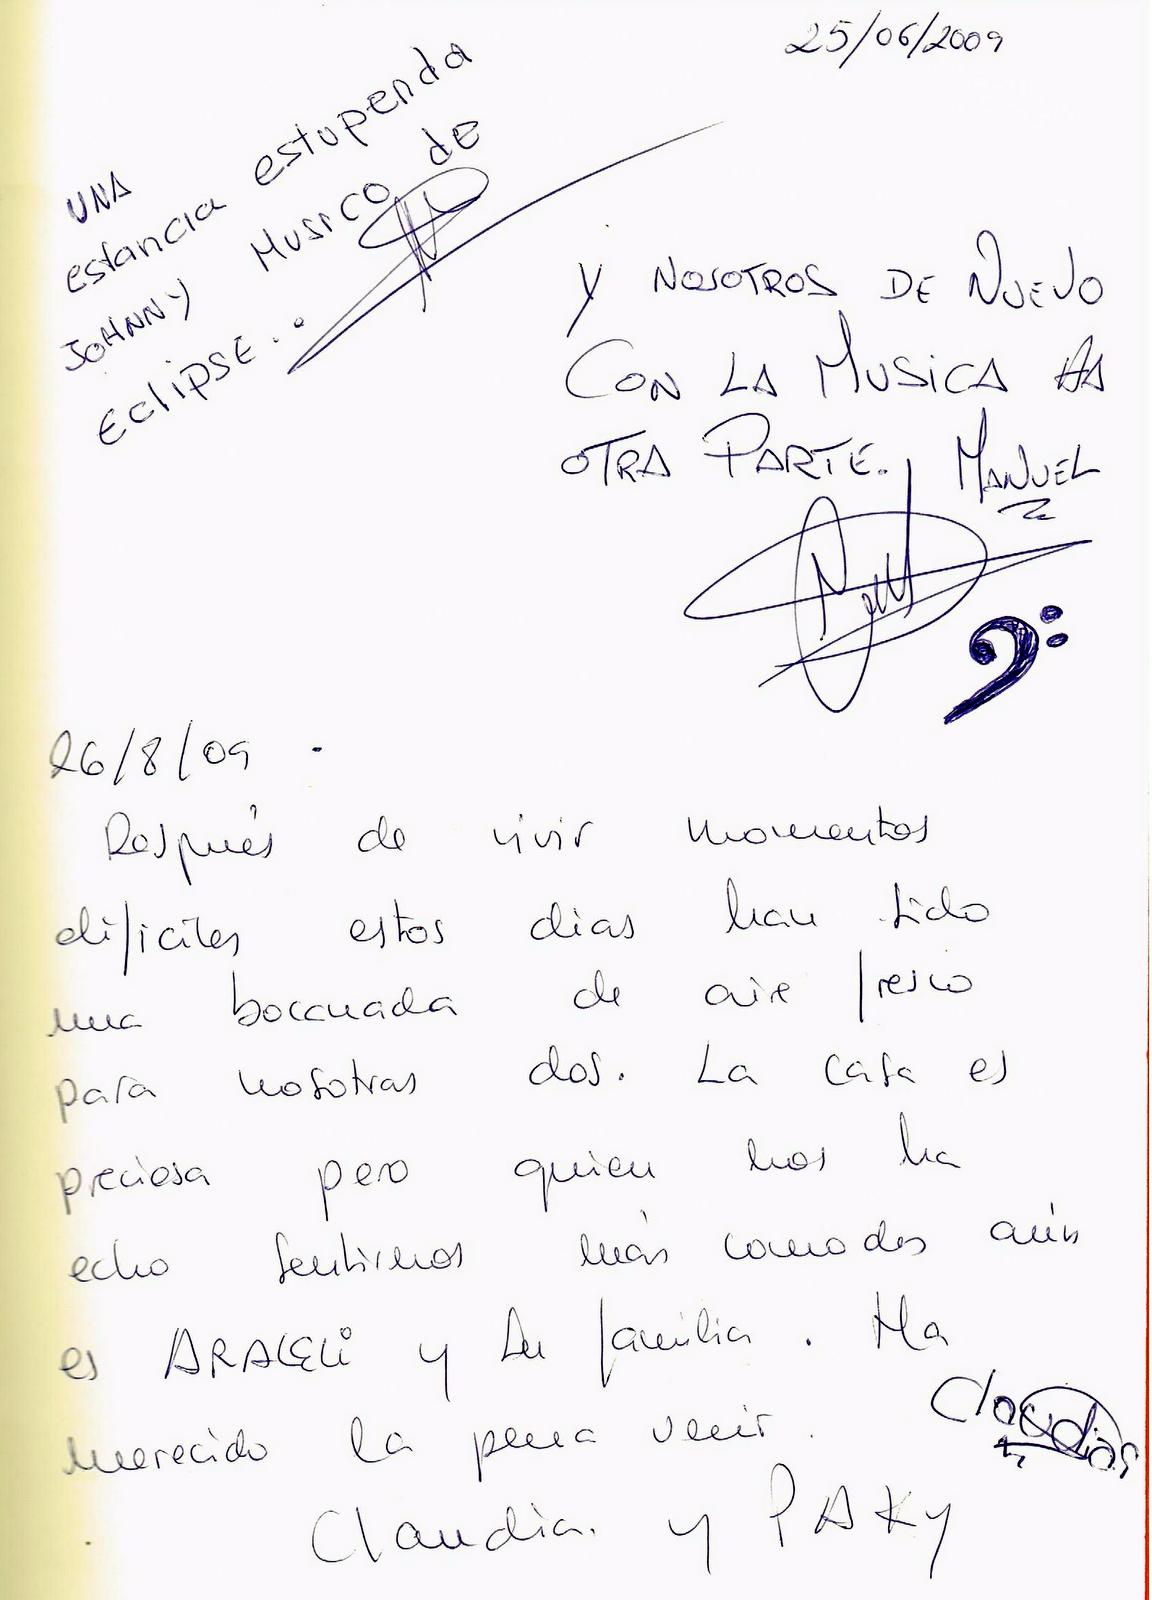 25/06/2009
UNA
estancia estupenda
JOHNNY MUSICO de
EclipSE..
Y NOSOTROS DE NUEVO
CON LA MUSICA A
OTRA PARTE. MANUEL
26/8/09 .
Después de vivir momentos
dificiles estos dias han sido
una boccnada de aire fresco
para nosotras dos. La casa es
preciosa pero quien nos ha
echo sentirnos más comodas aún
es ARACELI y su familia. Ha
merecido la pena venir.
Claudia
Claudia. y PAKY